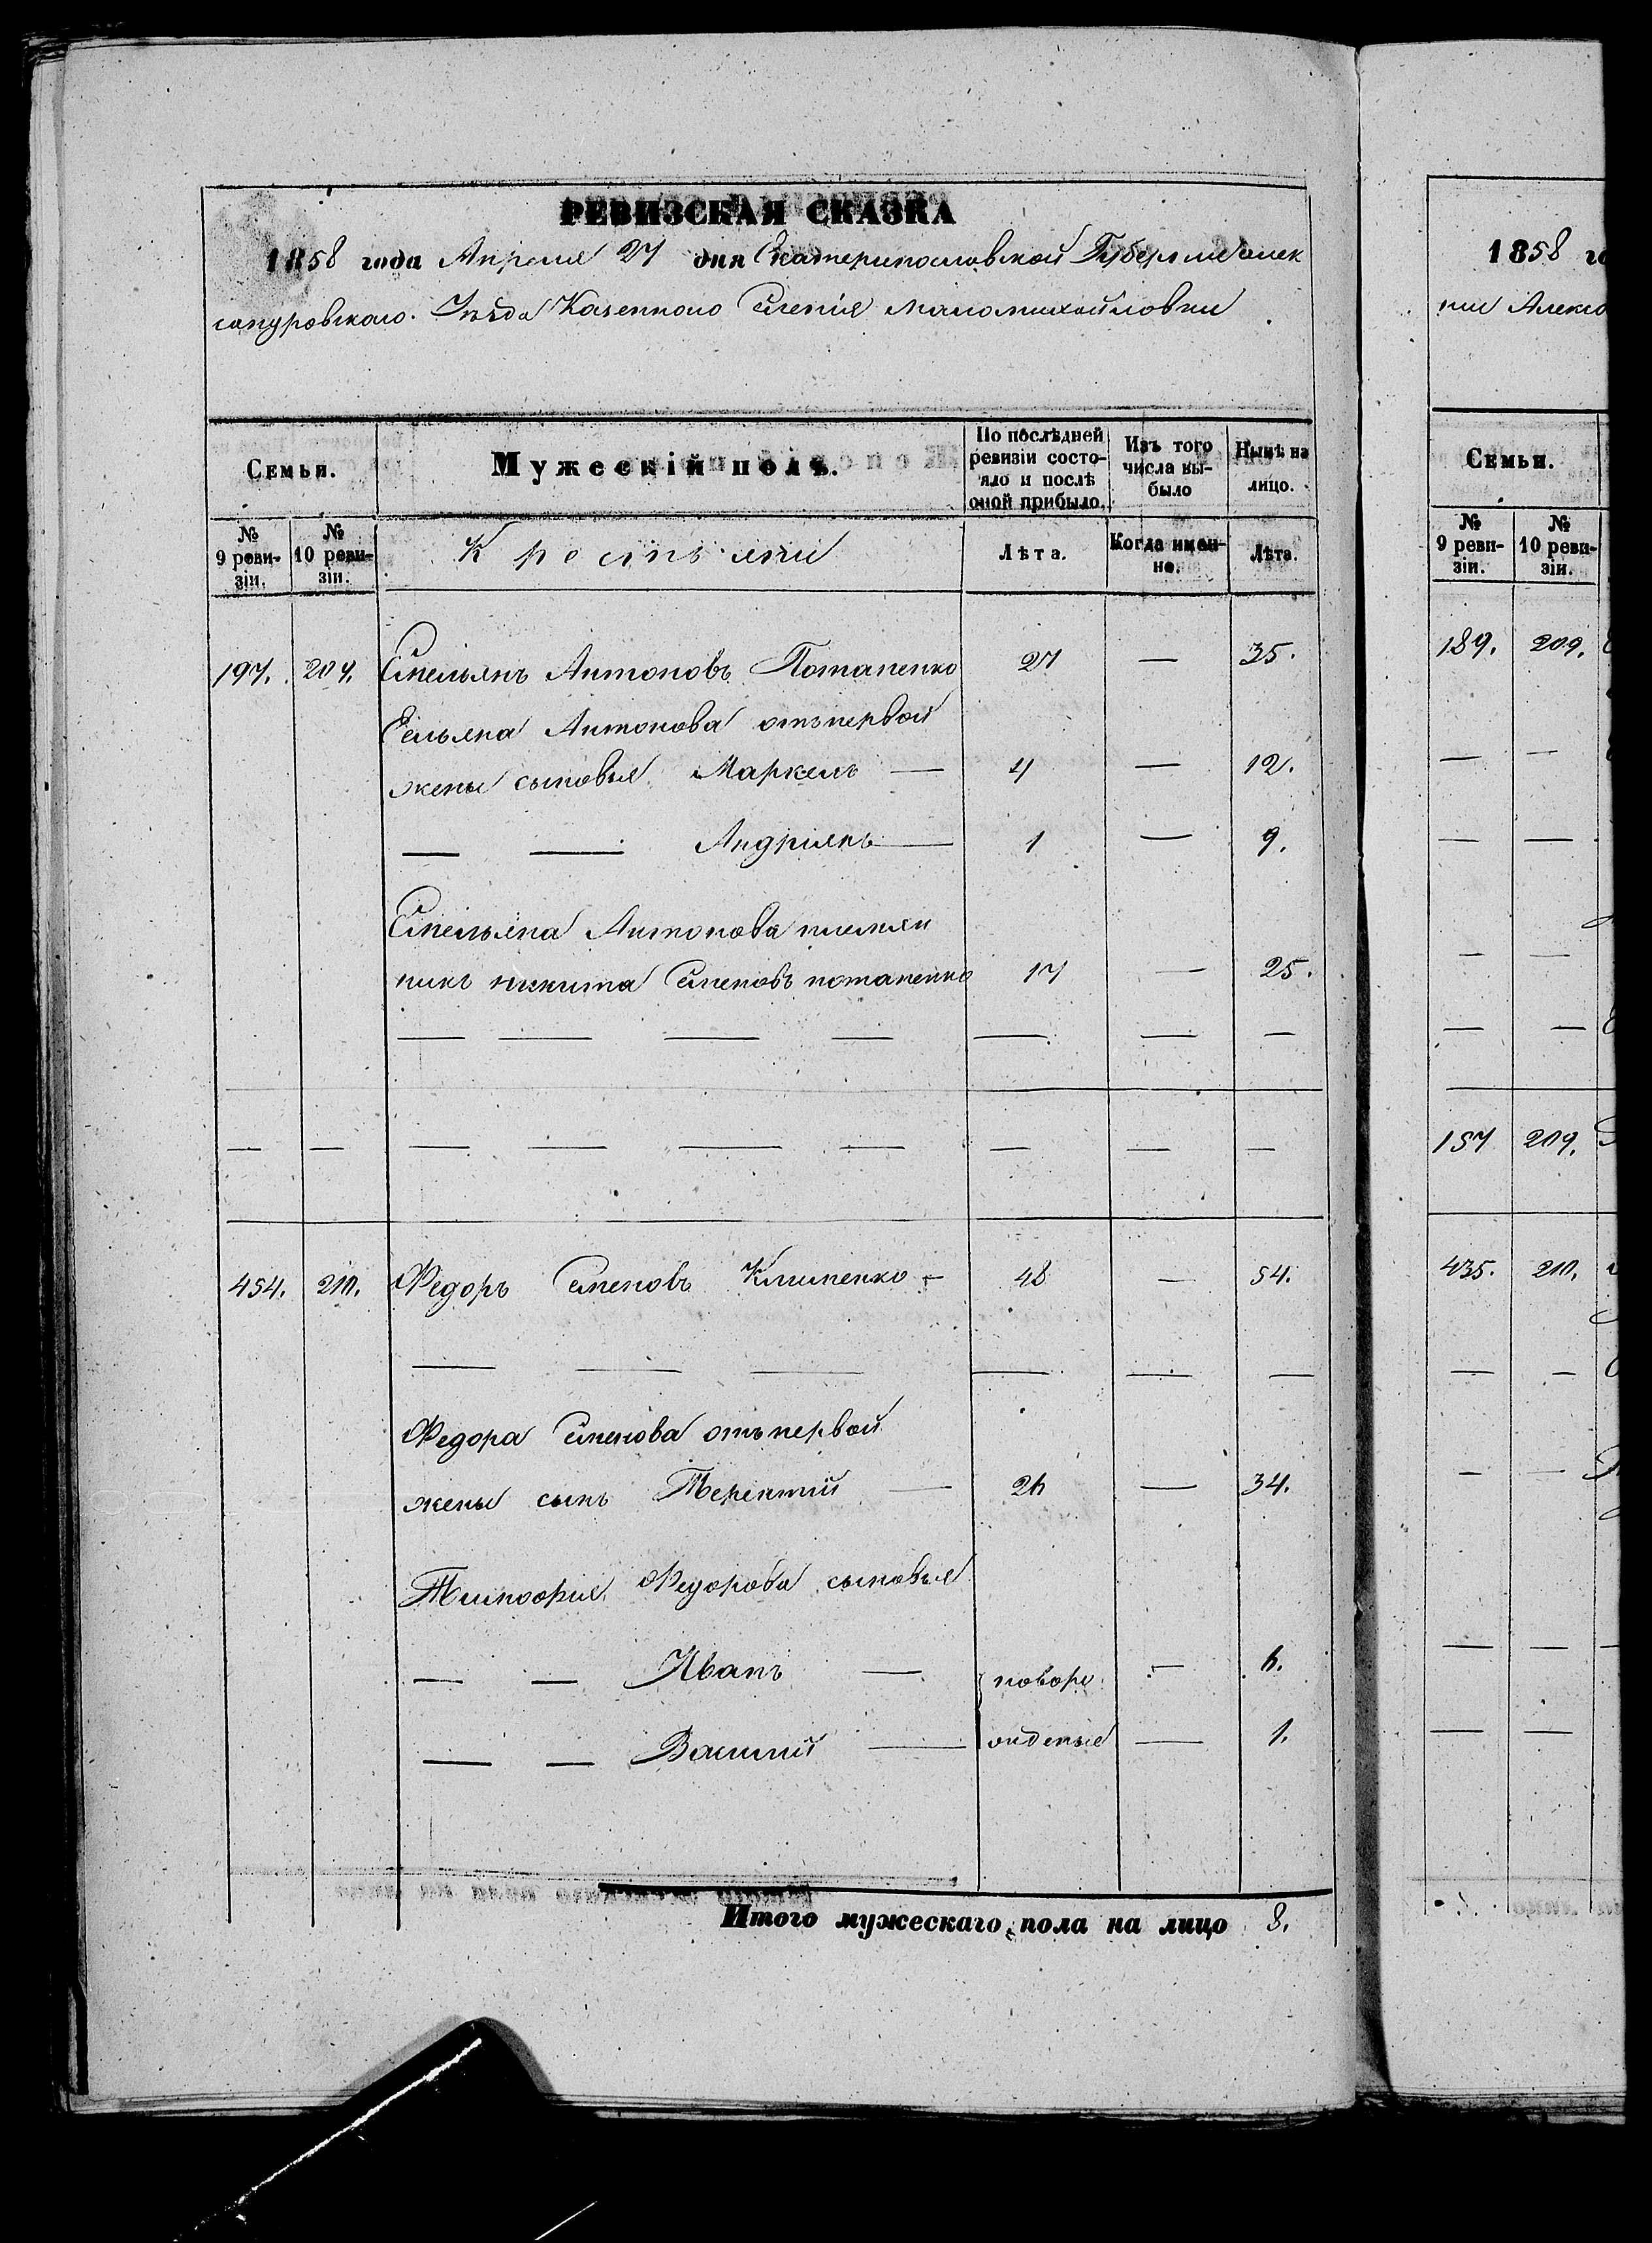 РЕВИЗСКАЯ СКАЗКА
1858 года Апреля 27 дня Екатеринославской Губернiи Алек
сандровскаго Уѣзда Казенного Селенiя Маломихайловки
Семьи.
Мужескiй полъ.
По послѣдней ревизiи состо-
яло и послѣ
оной прибыло.
Изъ того
числа вы-
было
Нынѣ на
лицо.
№
9 реви-
зiи.
№
10 реви-
зiи.
Крестьяни
Лѣта.
Когда имен-
но.
Лѣта.
197. 209. Емельянъ Антоновъ Потапенко 27 — 35.
Емельяна Антонова отъ первой
жены сыновья Маркелъ — 4 — 12.
— — Андрiянъ — 1 — 9.
Емельяна Антонова племян
никъ никита Семеновъ потапенко 17 — 25.
— — — — — — —
— — — — — — — — —
454. 210. Федоръ Семеновъ Клименко — 48 — 54.
— — — — — —
Федора Семенова отъ первой
жены сынъ Терентiй — 26 — 34.
Федорова сыновья
— — Иванъ — новоро — 6.
— — Василiй — жденые — 1.
Итого мужескаго пола на лицо 8.
1858 го
нiи Алекса
Семьи.
№
9 реви-
зiи.
№
10 реви-
зiи.
189. 209.
— —
— —
— —
— —
157 209.
435. 210.
— —
— —
— —
— —